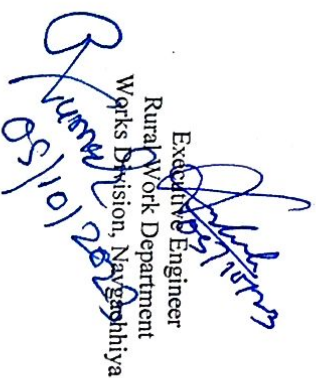 05/10/23
Executive Engineer
Rural Work Department
Works Division, Navgachhiya
Kumar
05/10/2023